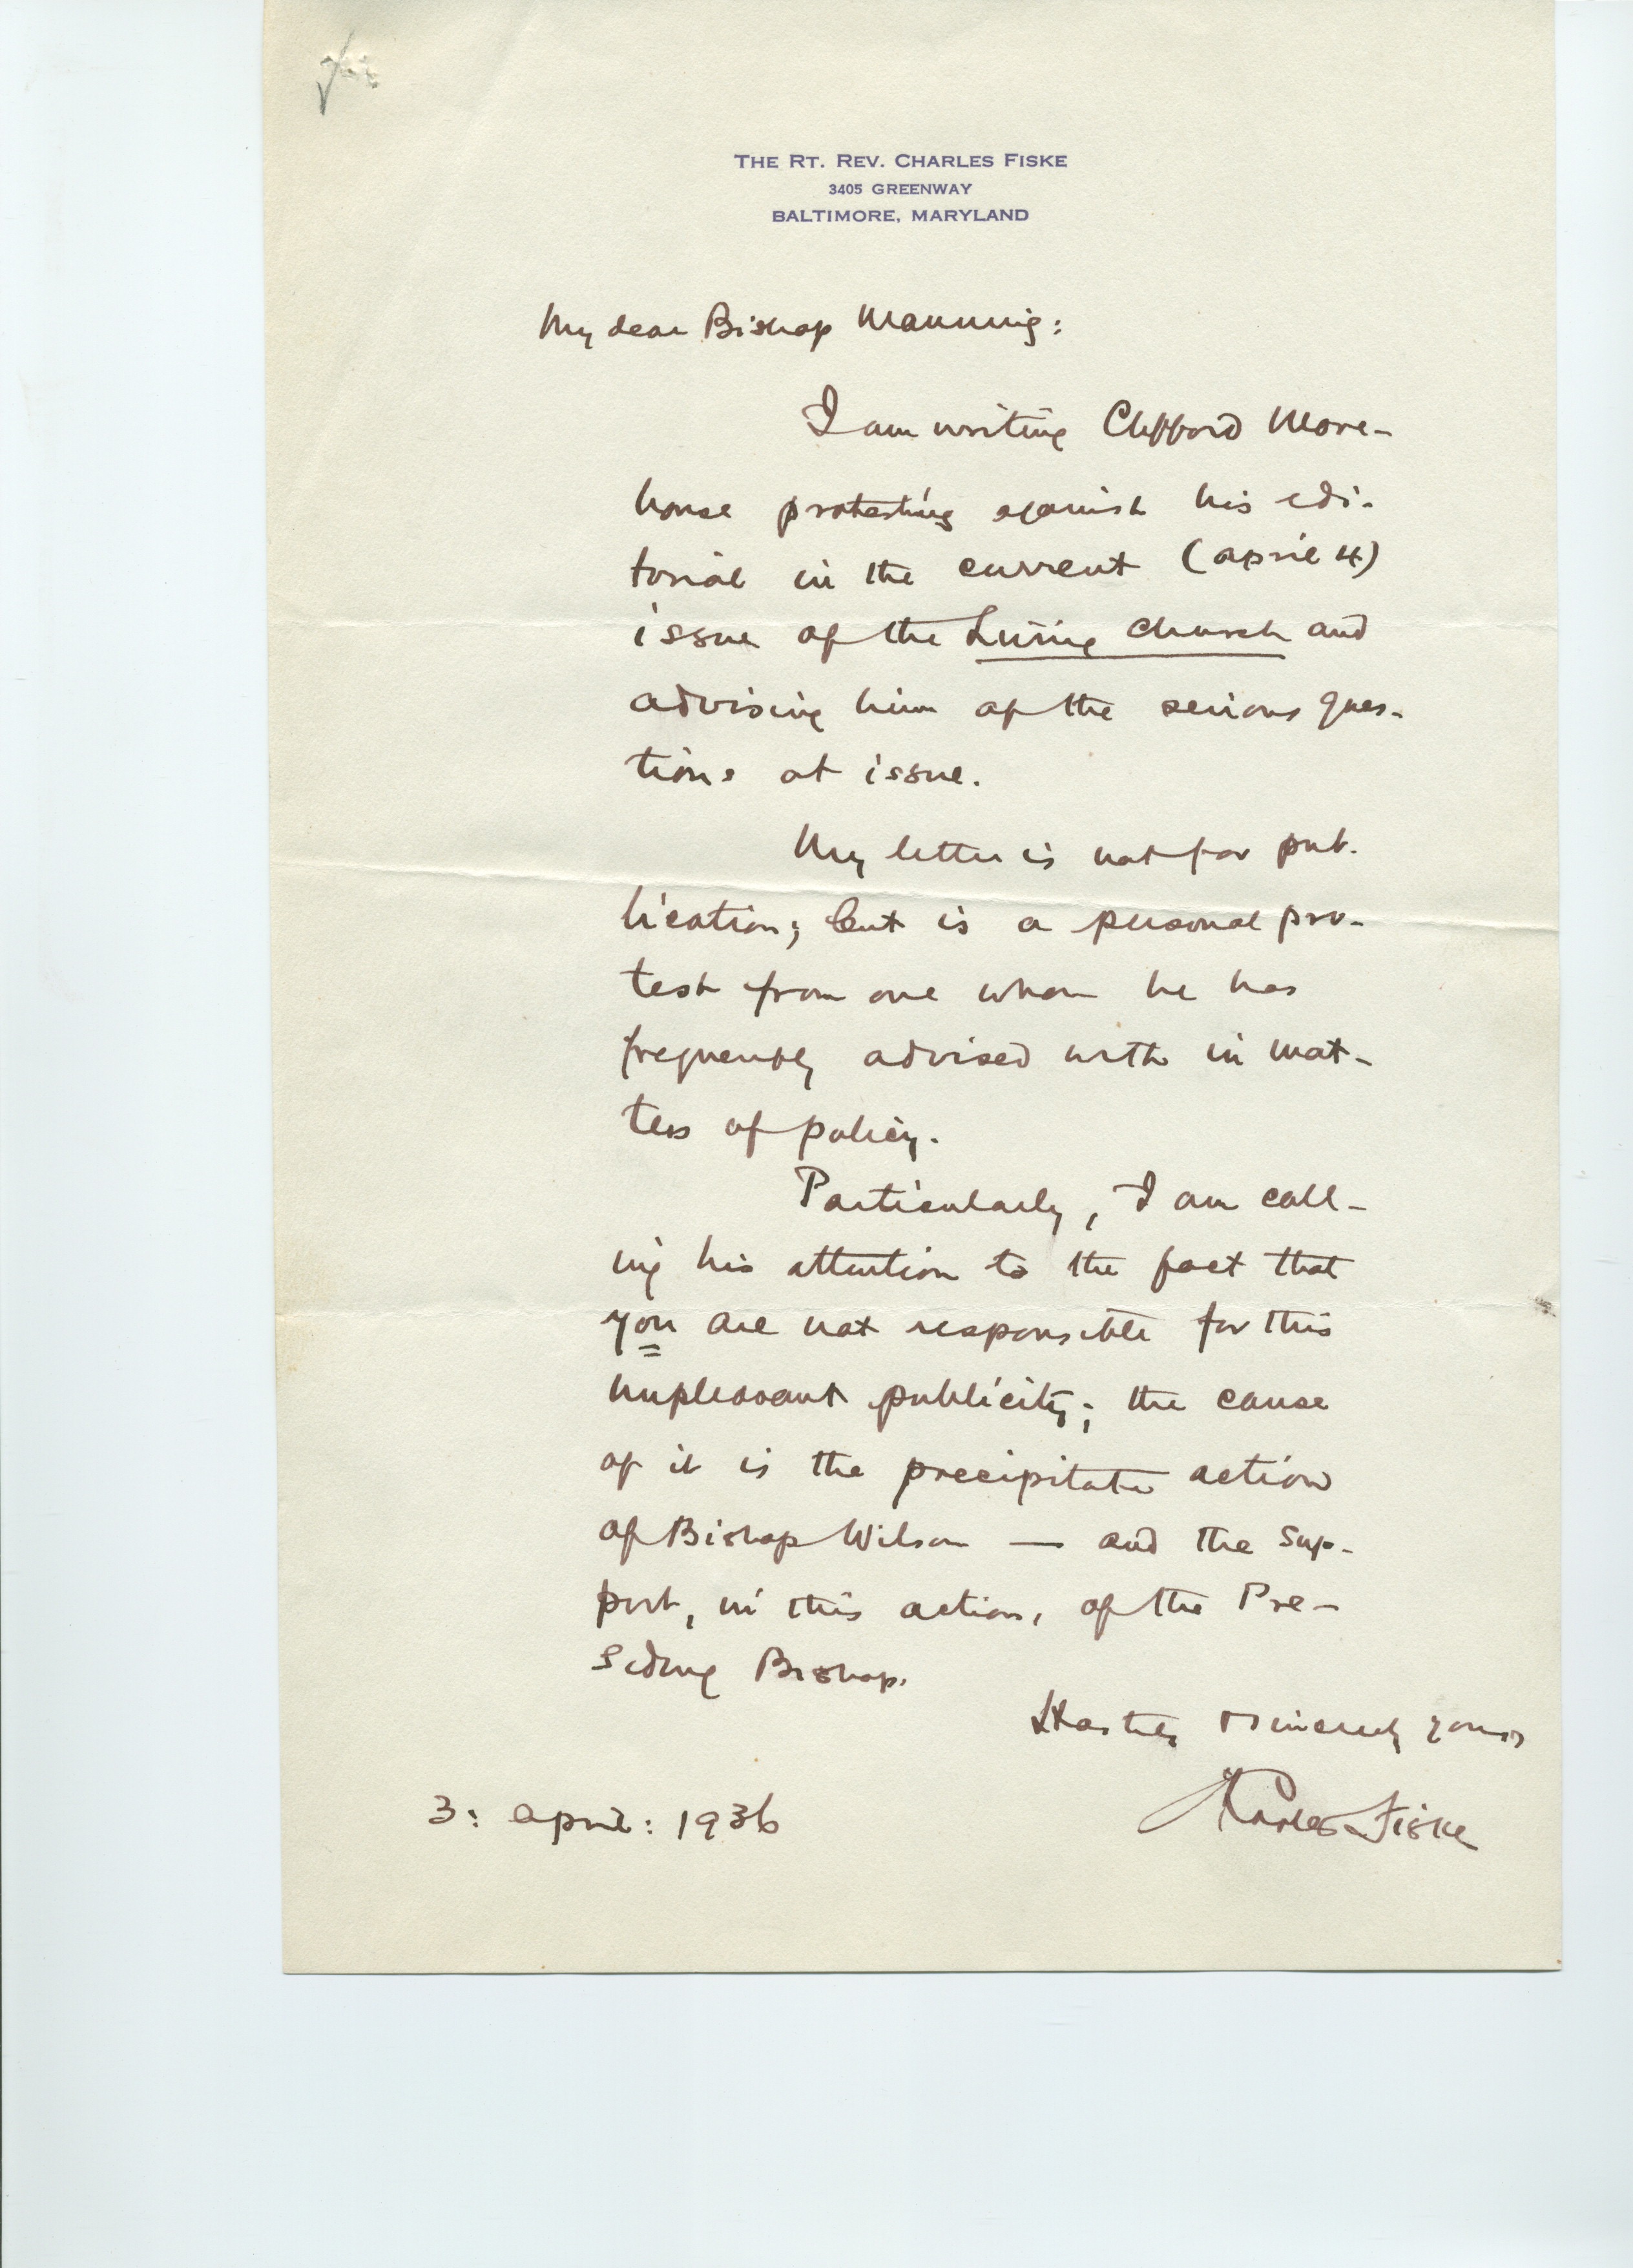 THE RT. REV. CHARLES FISKE
3405 GREENWAY
BALTIMORE, MARYLAND
My dear Bishop Manning:
I am writing Clifford More-
house protesting against his edi-
torial in the current (April 4)
issue of the Living Church and
advising him of the serious ques-
tions at issue.
My letter is not for pub-
lication; but is a personal pro-
test from one whom he has
frequently advised with in mat-
ters of policy.
Particularly, I am call-
ing his attention to the fact that
you are not responsible for this
unpleasant publicity; the cause
of it is the precipitate action
of Bishop Wilson — and the sup-
port, in this action, of the Pre-
siding Bishop.
Hastily sincerely yours
Charles Fiske
3: April: 1936